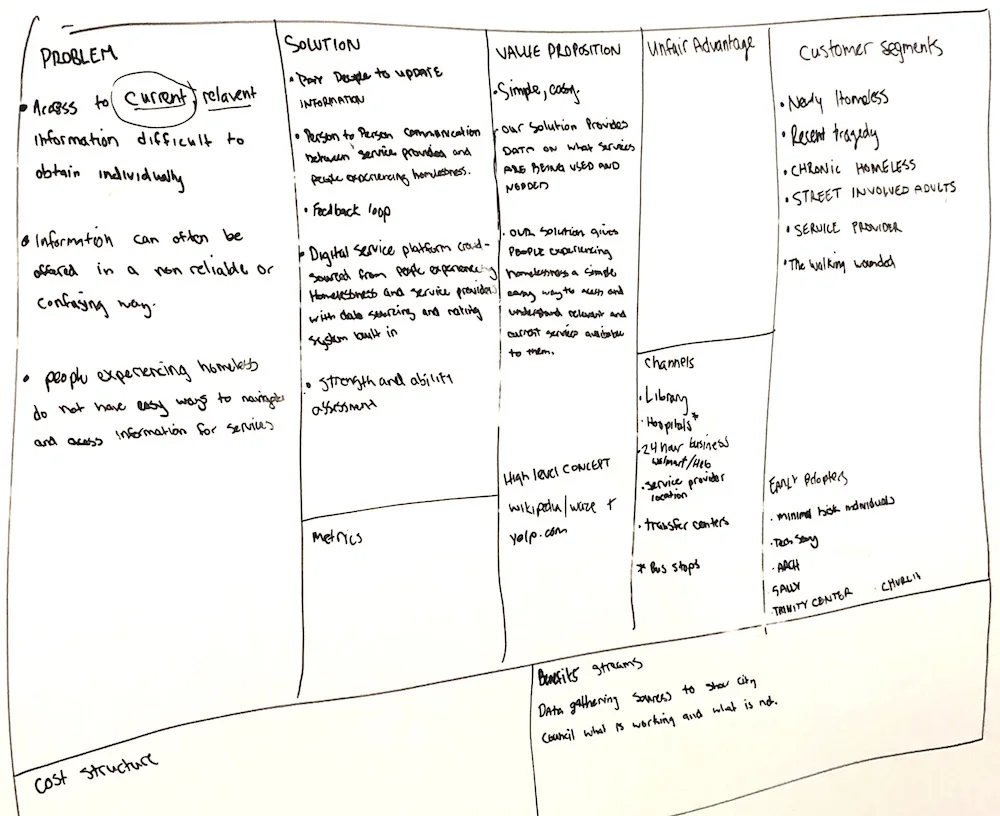 PROBLEM
• Access to current, relavent
information difficult to
obtain individually
• Information can often be
offered in a non reliable or
confusing way.
• people experiencing homeless
do not have easy ways to navigate
and access information for services
SOLUTION
• Pair People to UPDATE
INFORMATION
• Person to Person communication
between service provider and
people experiencing homelessness.
• Feedback loop
• Digital service platform crowd-
sourced from people experiencing
Homelessness and service providers
with data sourcing and rating
system built in
• Strength and ability
assessment
Metrics
VALUE PROPOSITION
• Simple, easy.
• OUR Solution Provides
DATA ON what services
ARE BEING USED AND
NEEDED
• OUR Solution gives
PEOPLE experiencing
homelessness a simple
easy way to access and
understand relevant and
current services available
to them.
High level CONCEPT
Wikipedia/waze +
yelp.com
Unfair Advantage
Channels
• Library
• Hospitals*
• 24 hour business
Walmart/HEB
• Service provider
location
• transfer centers
* Bus stops
Customer Segments
• Newly Homeless
• Recent tragedy
• CHRONIC HOMELESS
• STREET INVOLVED ADULTS
• SERVICE PROVIDER
• The walking wounded
EARLY Adopters
• minimal risk individuals
• Tech Savy
• ARCH
SALLY
TRINITY CENTER • CHURCH
Cost Structure
Benefits Streams
DATA gathering sources to show city
Council what is working and what is not.